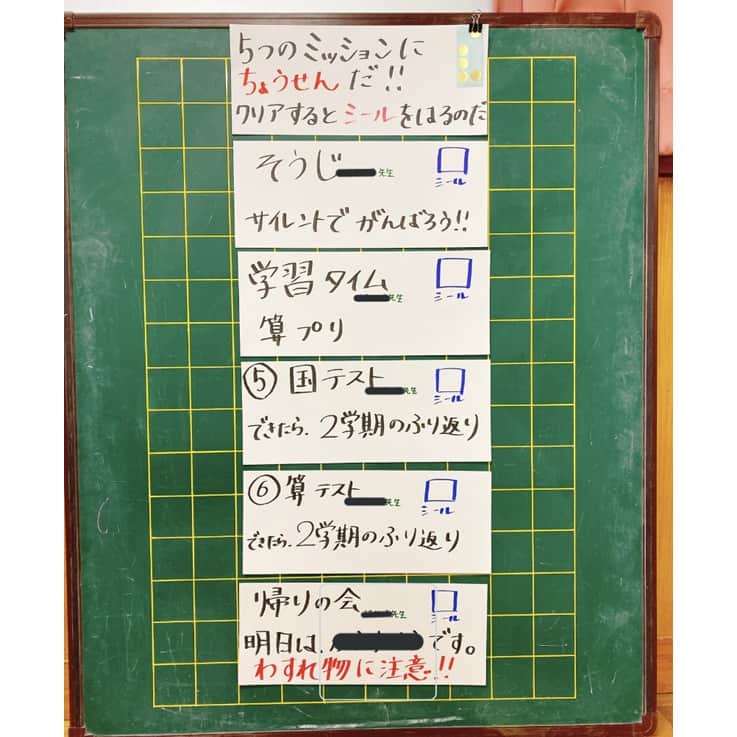 5つのミッションに
ちょうせんだ!!
クリアするとシールをはるのだ
そうじ 先生
シール
サイレントでがんばろう!!
学習タイム 先生
シール
算プリ
⑤国テスト 先生
シール
できたら、2学期のふり返り
⑥算テスト 先生
シール
できたら、2学期のふり返り
帰りの会 先生
シール
明日は、です。
わすれ物に注意!!